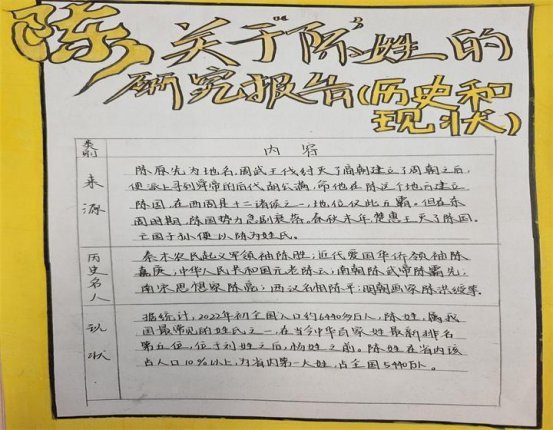 陈
关于"陈"姓的
研究报告(历史和
现状)
类别
内容
来源
陈原先为地名,周武王伐纣灭了商朝建立了周朝之后,
便派人寻到舜帝的后代胡公满,帝他在陈这个地方建立
陈国,在西周是十二诸侯之一,地位仅此五霸。但在东
周时期,陈国势力急剧衰落。春秋末年,楚惠王灭了陈国,
亡国子孙便以陈为姓氏。
历史名人
秦末农民起义军领袖陈胜;近代爱国华侨领袖陈
嘉庚,中华人民共和国元老陈云;南朝陈武帝陈霸先;
南宋思想家陈亮;西汉名相陈平;明朝画家陈洪绶等.
现状
据统计,2022年初全国人口约6440多万人,陈姓,属我
国最常见的姓氏之一,在当今中华百家姓最新排名
第五位,位于刘姓之后,杨姓之前。陈姓在省内该
占人口10%以上,为省内第一人姓,占全国5440万人。